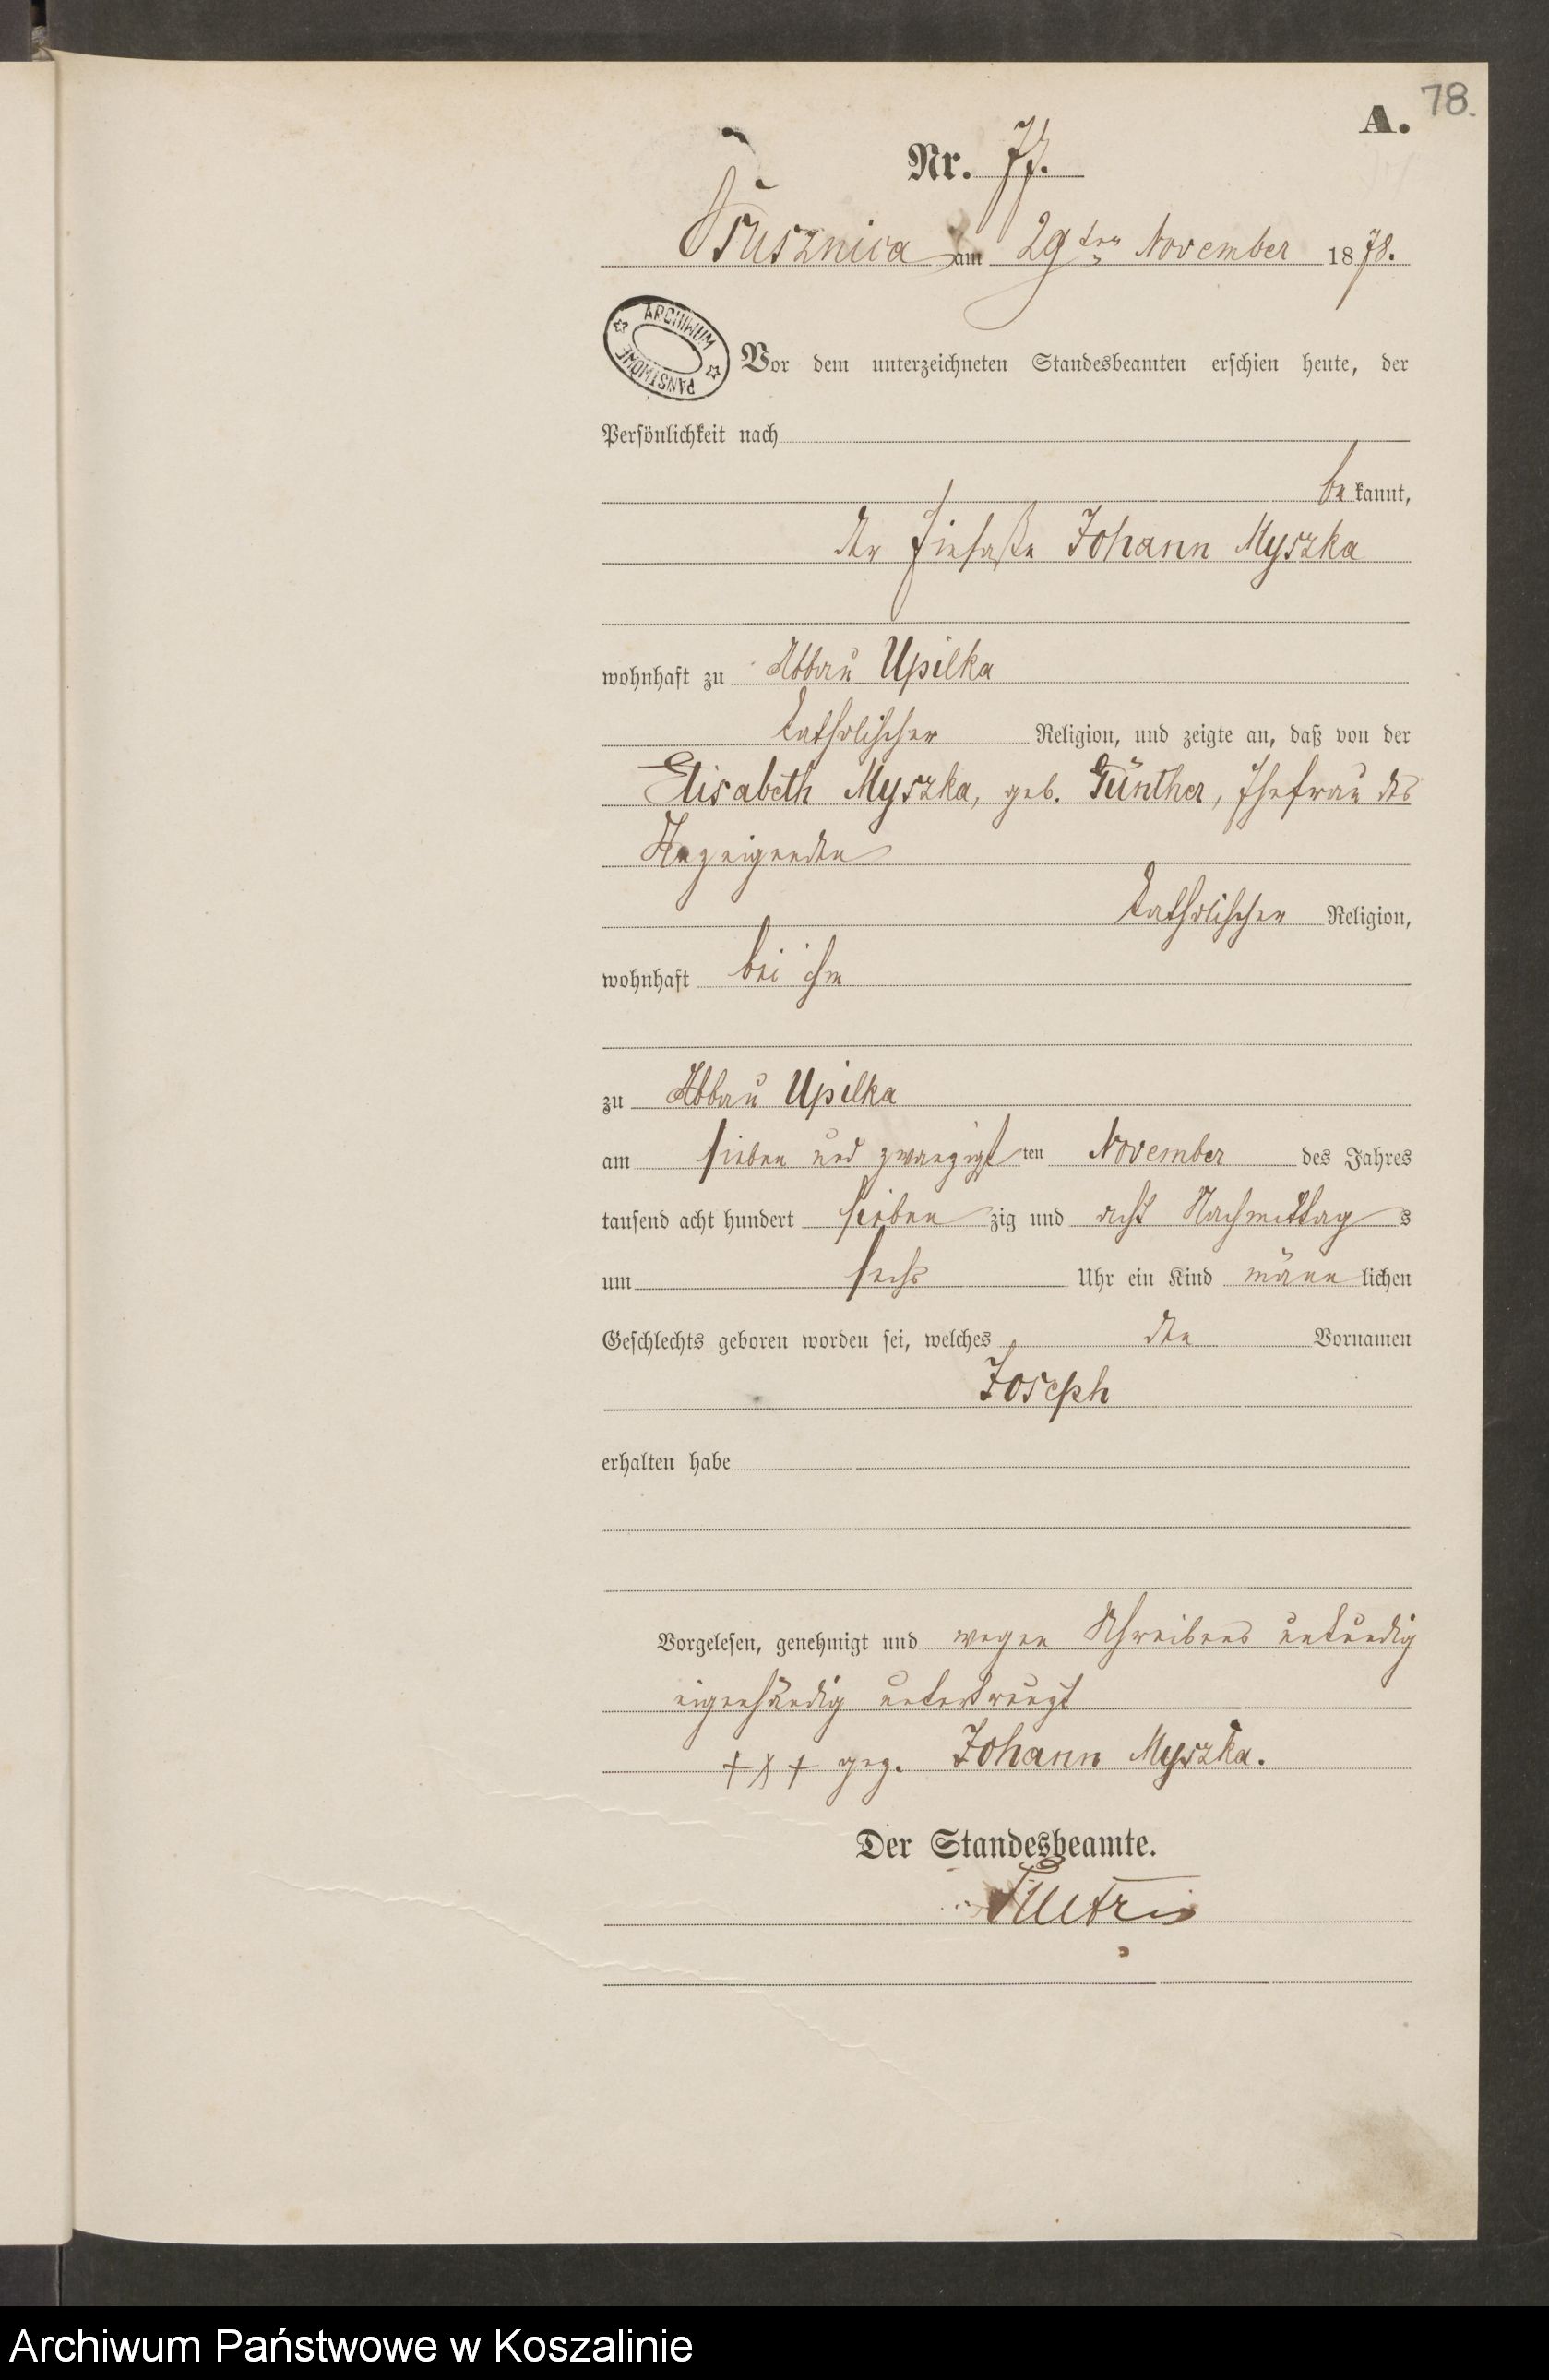 78.
A.
Nr. 77.
Prusznica am 29ten November 1878.
ARCHIWUM PAŃSTWOWE
Vor dem unterzeichneten Standesbeamten erschien heute, der
Persönlichkeit nach
bekannt,
der Einsaße Johann Myszka
wohnhaft zu Abbau Upilka
katholischer Religion, und zeigte an, daß von der
Elisabeth Myszka, geb. Günther, Ehefrau des
Anzeigenden
katholischer Religion,
wohnhaft bei ihm
zu Abbau Upilka
am sieben und zwanzigsten November des Jahres
tausend acht hundert siebenzig und acht Nachmittags
um sechs Uhr ein Kind männlichen
Geschlechts geboren worden sei, welches den Vornamen
Joseph
erhalten habe
Vorgelesen, genehmigt und wegen Schreibens unkundig
eigenhändig unterkreuzt
+++ gez. Johann Myszka.
Der Standesbeamte.
Archiwum Państwowe w Koszalinie